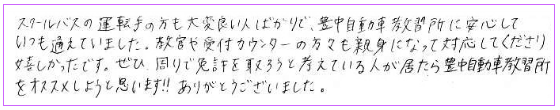 スクールバスの運転手の方も大変良い人ばかりで、豊中自動車教習所に安心して
いつも通えていました。教官や受付カウンターの方々も親身になって対応してくださり
嬉しかったです。ぜひ、周りで免許を取ろうと考えている人が居たら豊中自動車教習所
をオススメしようと思います!! ありがとうございました。